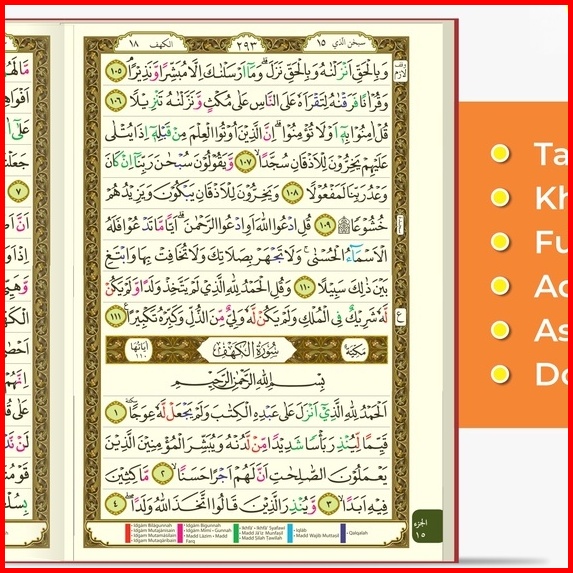 سبحن الذي ١٥
٢٩٣
الكهف ١٨
وَبِالْحَقِّ اَنْزَلْنٰهُ وَبِالْحَقِّ نَزَلَۗ وَمَآ اَرْسَلْنٰكَ اِلَّا مُبَشِّرًا وَّنَذِيْرًاۘ ١٠٥
وَقُرْاٰنًا فَرَقْنٰهُ لِتَقْرَاَهٗ عَلَى النَّاسِ عَلٰى مُكْثٍ وَّنَزَّلْنٰهُ تَنْزِيْلًا ١٠٦
قُلْ اٰمِنُوْا بِهٖٓ اَوْ لَا تُؤْمِنُوْاۗ اِنَّ الَّذِيْنَ اُوْتُوا الْعِلْمَ مِنْ قَبْلِهٖٓ اِذَا يُتْلٰى
عَلَيْهِمْ يَخِرُّوْنَ لِلْاَذْقَانِ سُجَّدًاۙ ١٠٧ وَّيَقُوْلُوْنَ سُبْحٰنَ رَبِّنَآ اِنْ كَانَ
وَعْدُ رَبِّنَا لَمَفْعُوْلًا ١٠٨ وَيَخِرُّوْنَ لِلْاَذْقَانِ يَبْكُوْنَ وَيَزِيْدُهُمْ
خُشُوْعًا ۩ ١٠٩ قُلِ ادْعُوا اللّٰهَ اَوِ ادْعُوا الرَّحْمٰنَۗ اَيًّا مَّا تَدْعُوْا فَلَهُ
الْاَسْمَاۤءُ الْحُسْنٰىۚ وَلَا تَجْهَرْ بِصَلَاتِكَ وَلَا تُخَافِتْ بِهَا وَابْتَغِ
بَيْنَ ذٰلِكَ سَبِيْلًا ١١٠ وَقُلِ الْحَمْدُ لِلّٰهِ الَّذِيْ لَمْ يَتَّخِذْ وَلَدًا وَّلَمْ يَكُنْ
لَّهٗ شَرِيْكٌ فِى الْمُلْكِ وَلَمْ يَكُنْ لَّهٗ وَلِيٌّ مِّنَ الذُّلِّ وَكَبِّرْهُ تَكْبِيْرًا ١١١
مكية
سُوْرَةُ الْكَهْفِ
اٰيَاتُهَا ١١٠
بِسْمِ اللّٰهِ الرَّحْمٰنِ الرَّحِيْمِ
اَلْحَمْدُ لِلّٰهِ الَّذِيْٓ اَنْزَلَ عَلٰى عَبْدِهِ الْكِتٰبَ وَلَمْ يَجْعَلْ لَّهٗ عِوَجًا ١
قَيِّمًا لِّيُنْذِرَ بَأْسًا شَدِيْدًا مِّنْ لَّدُنْهُ وَيُبَشِّرَ الْمُؤْمِنِيْنَ الَّذِيْنَ
يَعْمَلُوْنَ الصّٰلِحٰتِ اَنَّ لَهُمْ اَجْرًا حَسَنًاۙ ٢ مَّاكِثِيْنَ
فِيْهِ اَبَدًاۙ ٣ وَّيُنْذِرَ الَّذِيْنَ قَالُوا اتَّخَذَ اللّٰهُ وَلَدًا ٤
الجزء
١٥
Idgam Bilagunnah
Idgam Mutajanisain
Idgam Mutamasilain
Idgam Mutaqaribain
Idgam Bigunnah
Idgam Mimi - Gunnah
Madd Lazim - Madd Farq
Ikhfa' - Ikhfa' Syafawi
Madd Ja'iz Munfasil
Madd Silah Tawilah
Iqlab
Madd Wajib Muttasil
Qalqalah